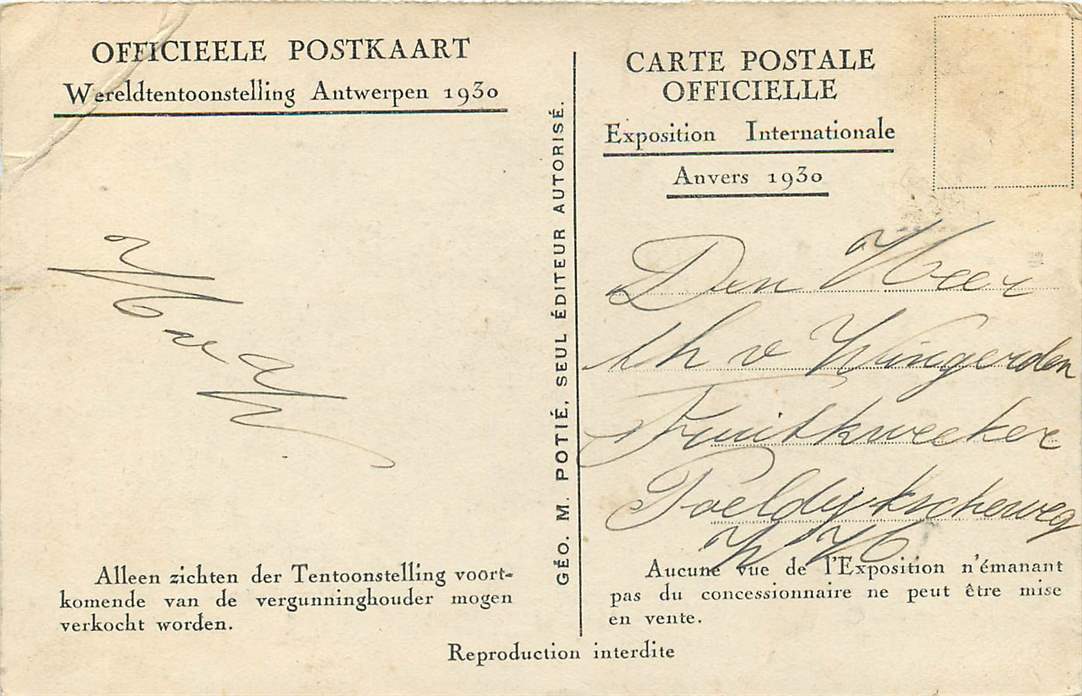 OFFICIEELE POSTKAART
Wereldtentoonstelling Antwerpen 1930
Alleen zichten der Tentoonstelling voort-
komende van de vergunninghouder mogen
verkocht worden.
GÉO. M. POTIÉ, SEUL ÉDITEUR AUTORISÉ.
CARTE POSTALE
OFFICIELLE
Exposition Internationale
Anvers 1930
Den Heer
v Wingerden
Fruitkweeker
Poeldykscheweg
Aucune vue de l'Exposition n'émanant
pas du concessionnaire ne peut être mise
en vente.
Reproduction interdite